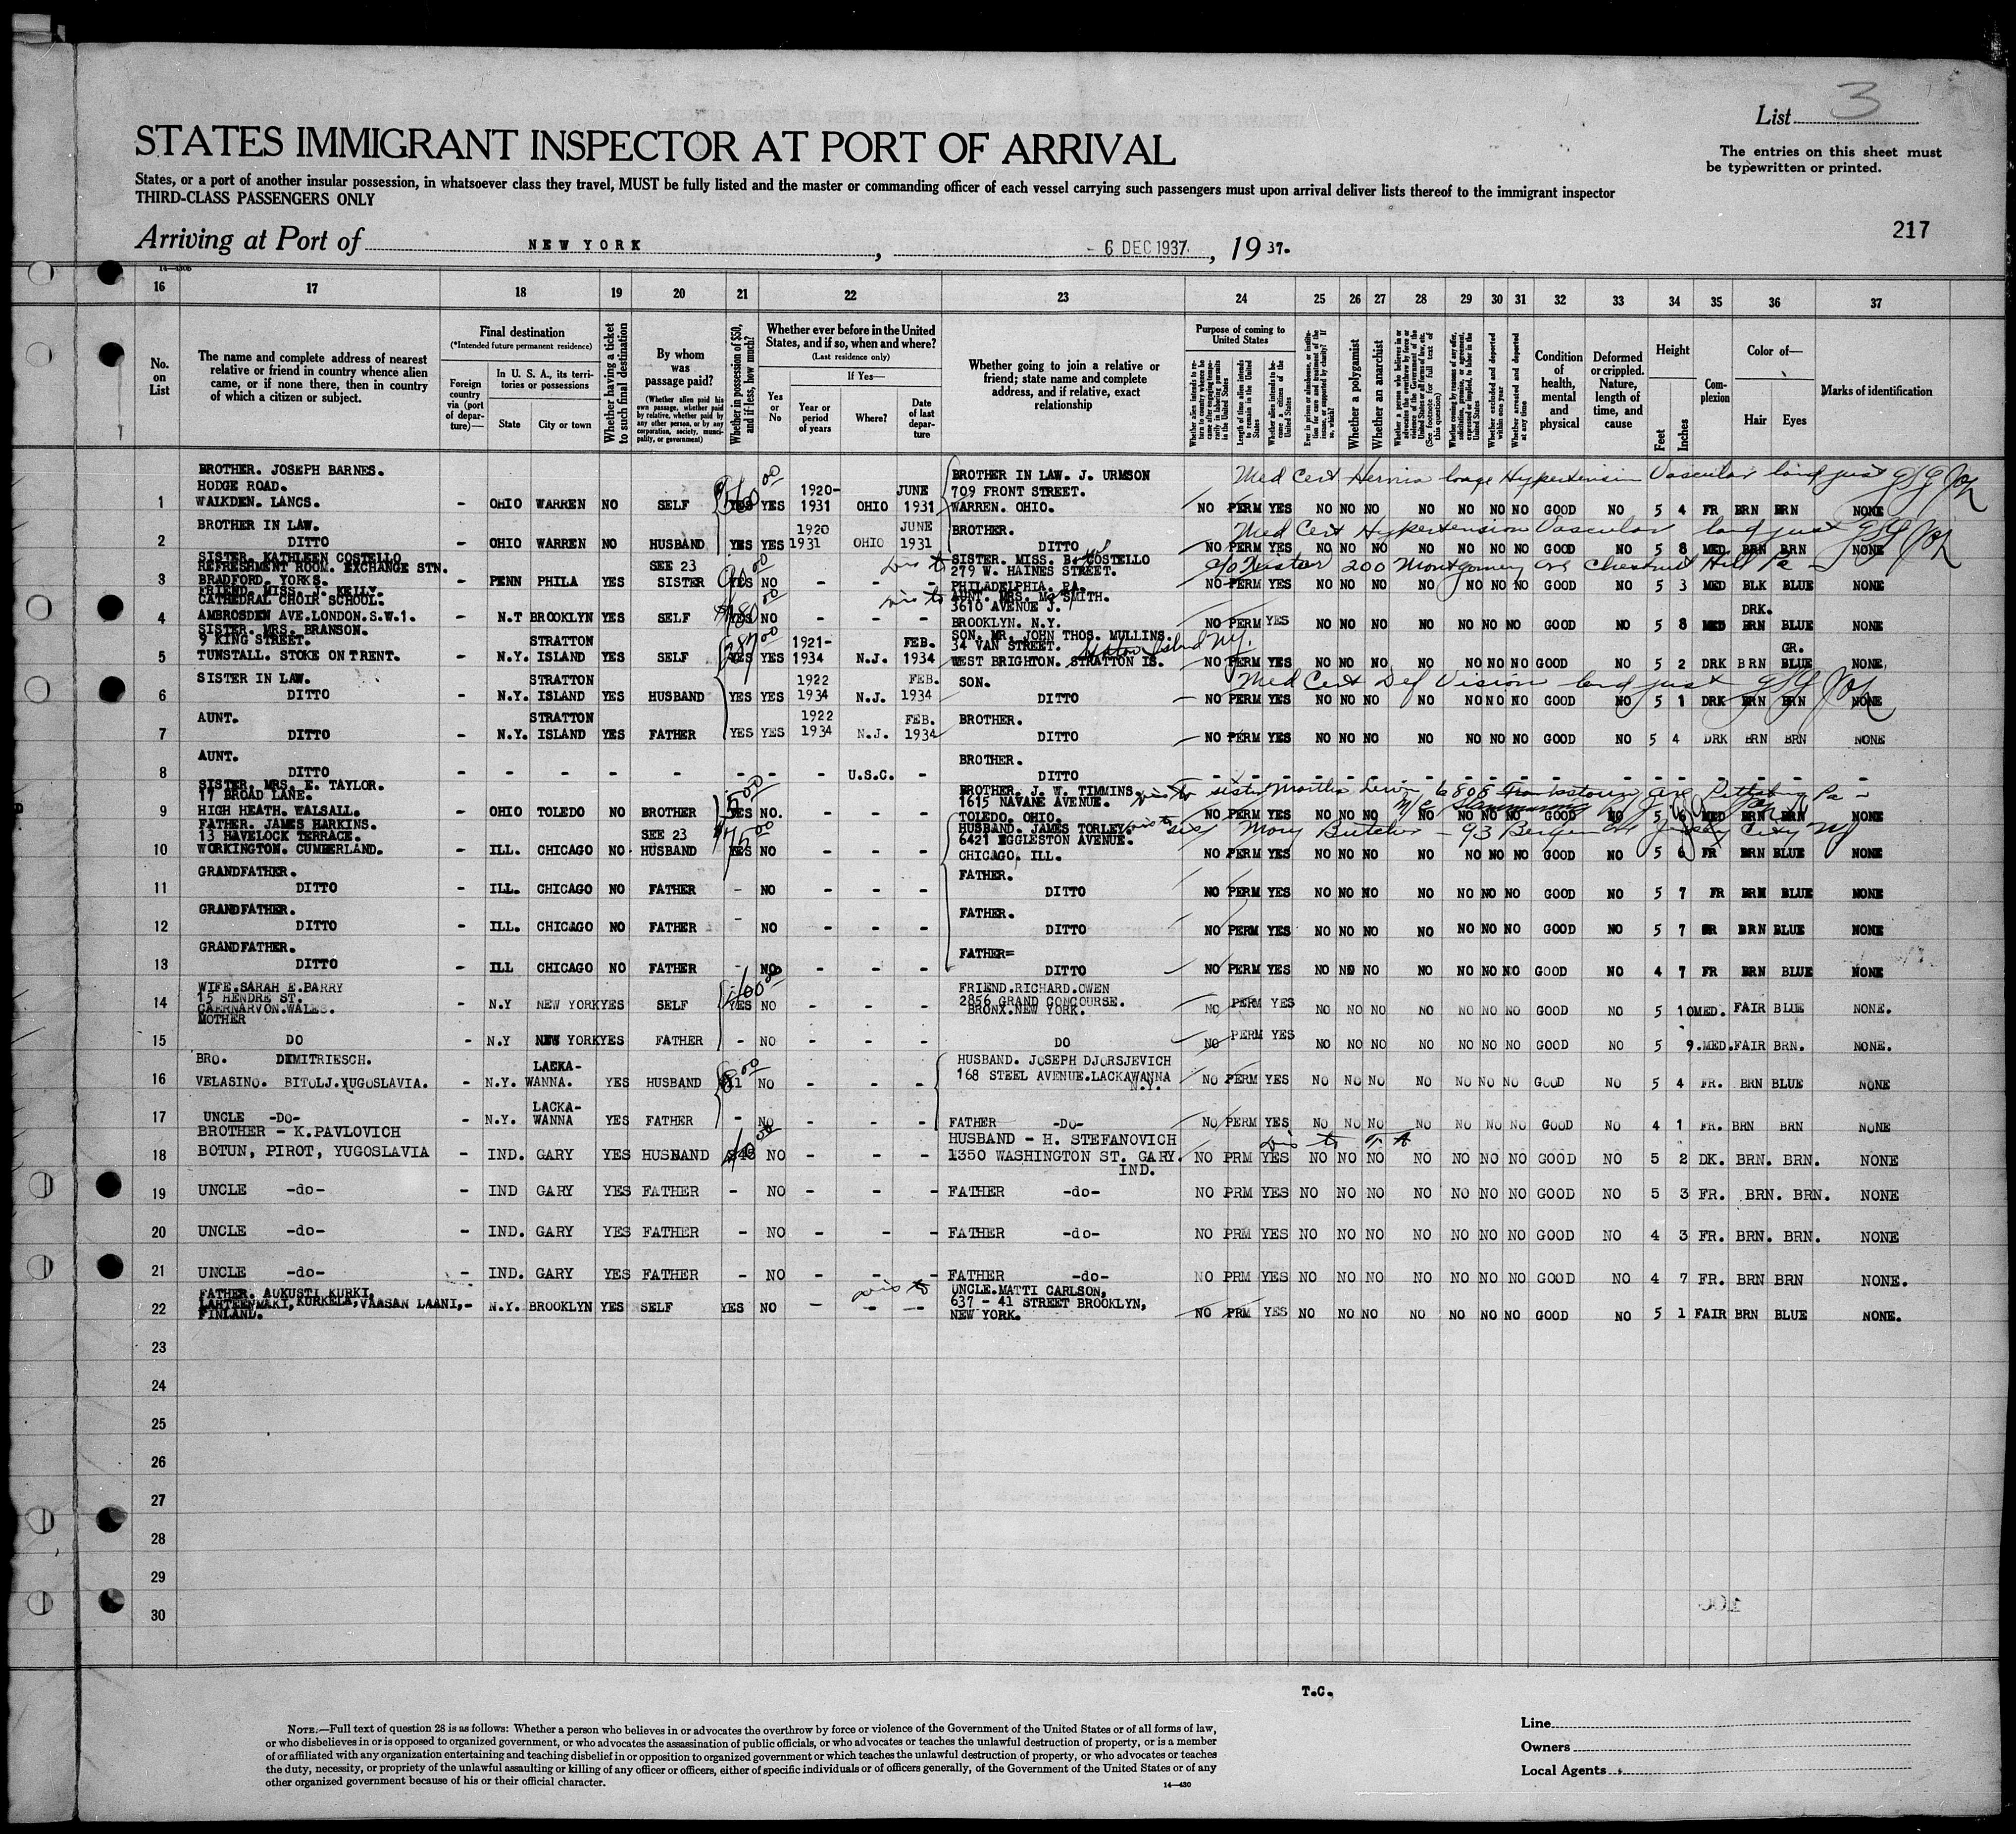 List 3
STATES IMMIGRANT INSPECTOR AT PORT OF ARRIVAL
The entries on this sheet must
be typewritten or printed.
States, or a port of another insular possession, in whatsoever class they travel, MUST be fully listed and the master or commanding officer of each vessel carrying such passengers must upon arrival deliver lists thereof to the immigrant inspector
THIRD-CLASS PASSENGERS ONLY
217
Arriving at Port of NEW YORK, 6 DEC 1937, 1937.
14—430b
16 17 18 19 20 21 22 23 24 25 26 27 28 29 30 31 32 33 34 35 36 37
No. on List
The name and complete address of nearest relative or friend in country whence alien came, or if none there, then in country of which a citizen or subject.
Final destination
(*Intended future permanent residence)
Foreign country via (port of departure)—
In U. S. A., its territories or possessions
State City or town
Whether having a ticket to such final destination
By whom was passage paid?
(Whether alien paid his own passage, whether paid by relative, whether paid by any other person, or by any corporation, society, municipality, or government)
Whether in possession of $50, and if less, how much?
Whether ever before in the United States, and if so, when and where?
(Last residence only)
Yes or No
If Yes—
Year or period of years
Where?
Date of last departure
Whether going to join a relative or friend; state name and complete address, and if relative, exact relationship
Purpose of coming to United States
Whether alien intends to return to country whence he came after engaging temporarily in laboring pursuits in the United States
Length of time alien intends to remain in the United States
Whether alien intends to become a citizen of the United States
Whether a polygamist
Whether an anarchist
Whether excluded and deported within one year
Whether arrested and deported at any time
Condition of health, mental and physical
Deformed or crippled. Nature, length of time, and cause
Height
Feet Inches
Complexion
Color of—
Hair Eyes
Marks of identification
BROTHER. JOSEPH BARNES. BROTHER IN LAW. J. URMSON Med Cert Hernia Hypertension Vascular land just
HODGE ROAD. 1920- JUNE 709 FRONT STREET.
1 WALKDEN. LANCS. - OHIO WARREN NO SELF YES YES 1931 OHIO 1931 WARREN. OHIO. NO PERM YES NO NO NO NO NO NO NO GOOD NO 5 4 FR BRN BRN NONE
BROTHER IN LAW. 1920 JUNE BROTHER. Med Cert Hypertension Vascular land just
2 DITTO - OHIO WARREN NO HUSBAND YES YES 1931 OHIO 1931 DITTO NO PERM YES NO NO NO NO NO NO NO GOOD NO 5 8 MED BRN BRN NONE
SISTER. KATHLEEN COSTELLO SISTER. MISS. B. COSTELLO
REFRESHMENT ROOM. EXCHANGE STN. SEE 23 279 W. HAINES STREET. c/o Sister 200 Montgomery Ave Chestnut Hill Pa
3 BRADFORD. YORKS. - PENN PHILA YES SISTER YES NO - - - PHILADELPHIA. PA. NO PERM YES NO NO NO NO NO NO NO GOOD NO 5 3 MED BLK BLUE NONE
FRIEND. MISS. J. KELLY. AUNT. MRS. MG SMITH.
CATHEDRAL CHOIR SCHOOL. 3610 AVENUE J. DRK.
4 AMBROSDEN AVE.LONDON.S.W.1. - N.T BROOKLYN YES SELF YES NO - - - BROOKLYN. N.Y. NO PERM YES NO NO NO NO NO NO NO GOOD NO 5 8 MED BRN BLUE NONE
SISTER. MRS. BRANSON. SON. MR. JOHN THOS. MULLINS.
9 KING STREET. STRATTON 1921- FEB. 34 VAN STREET. Staten Island NY. GR.
5 TUNSTALL. STOKE ON TRENT. N.Y. ISLAND YES SELF YES YES 1934 N.J. 1934 WEST BRIGHTON. STRATTON IS. NO PERM YES NO NO NO NO NO NO NO GOOD NO 5 2 DRK BRN BLUE NONE,
SISTER IN LAW. STRATTON 1922 FEB. SON. Med Cert Def Vision land just
6 DITTO - N.Y. ISLAND YES HUSBAND YES YES 1934 N.J. 1934 DITTO NO PERM YES NO NO NO NO NO NO NO GOOD NO 5 1 DRK BRN BRN NONE
AUNT. STRATTON 1922 FEB. BROTHER.
7 DITTO - N.Y. ISLAND YES FATHER YES YES 1934 N.J. 1934 DITTO NO PERM YES NO NO NO NO NO NO NO GOOD NO 5 4 DRK BRN BRN NONE
AUNT. BROTHER.
8 DITTO - - - - - - - - U.S.C. - DITTO - - - - - - - - - - - - - - - - -
SISTER. MRS. E. TAYLOR. BROTHER. J. W. TIMMINS. sister Martha 6806 Frankstown Ave Pittsburg Pa
17 BROAD LANE. 1615 NAVANE AVENUE.
9 HIGH HEATH. WALSALL. OHIO TOLEDO NO BROTHER YES NO. - - - TOLEDO. OHIO. NO PERM YES NO NO NO NO NO NO NO GOOD NO 5 MED BRN BRN NONE
FATHER. JAMES HARKINS. HUSBAND. JAMES TORLEY. sis Mary Butcher - 93 Bergen Ave Jersey City NJ
13 HAVELOCK TERRACE. SEE 23 6421 EGGLESTON AVENUE.
10 WORKINGTON. CUMBERLAND. - ILL. CHICAGO NO HUSBAND YES NO - - - CHICAGO. ILL. NO PERM YES NO NO NO NO NO NO NO GOOD NO 5 6 FR BRN BLUE NONE
GRANDFATHER. FATHER.
11 DITTO - ILL. CHICAGO NO FATHER - NO - - - DITTO NO PERM YES NO NO NO NO NO NO NO GOOD NO 5 7 FR BRN BLUE NONE
GRANDFATHER. FATHER.
12 DITTO - ILL. CHICAGO NO FATHER - NO - - - DITTO NO PERM YES NO NO NO NO NO NO NO GOOD NO 5 7 BRN BLUE NONE
GRANDFATHER. FATHER=
13 DITTO - ILL CHICAGO NO FATHER - NO - - - DITTO NO PERM YES NO NO NO NO NO NO NO GOOD NO 4 7 FR BRN BLUE NONE
WIFE.SARAH E.BARRY FRIEND.RICHARD.OWEN
14 15 HENDRE ST. - N.Y NEW YORK YES SELF YES NO - - - 2856 GRAND CONCOURSE. NO PERM YES NO NO NO NO NO NO NO GOOD NO 5 10 MED. FAIR BLUE NONE.
CAERNARVON.WALES. BRONX.NEW YORK.
MOTHER
15 DO - N.Y NEW YORK YES FATHER - NO - - - DO NO PERM YES NO NO NO NO NO NO NO GOOD NO 5 9.MED.FAIR BRN. NONE.
BRO. DIMITRIESCH. LACKA- HUSBAND. JOSEPH DJORSJEVICH
16 VELASINO. BITOLJ.YUGOSLAVIA. - N.Y. WANNA. YES HUSBAND NO - - - 168 STEEL AVENUE.LACKAWANNA N.Y. NO PERM YES NO NO NO NO NO NO NO GOOD NO 5 4 FR. BRN BLUE NONE
LACKA-
17 UNCLE -DO- - N.Y. WANNA YES FATHER - NO - - - FATHER -DO- NO PERM YES NO NO NO NO NO NO NO GOOD NO 4 1 FR. BRN BRN NONE
BROTHER - K.PAVLOVICH HUSBAND - H. STEFANOVICH
18 BOTUN, PIROT, YUGOSLAVIA - IND. GARY YES HUSBAND NO - - - 1350 WASHINGTON ST. GARY. IND. NO PRM YES NO NO NO NO NO NO NO GOOD NO 5 2 DK. BRN. BRN. NONE
19 UNCLE -do- - IND GARY YES FATHER - NO - - - FATHER -do- NO PRM YES NO NO NO NO NO NO NO GOOD NO 5 3 FR. BRN. BRN. NONE
20 UNCLE -do- - IND. GARY YES FATHER - NO - - - FATHER -do- NO PRM YES NO NO NO NO NO NO NO GOOD NO 4 3 FR. BRN. BRN. NONE
21 UNCLE -do- - IND. GARY YES FATHER - NO - - - FATHER -do- NO PRM YES NO NO NO NO NO NO NO GOOD NO 4 7 FR. BRN BRN NONE.
FATHER. AUKUSTI KURKI, UNCLE.MATTI CARLSON,
22 LAHTEENMAKI, KURKELA, VAASAN LAANI,- N.Y. BROOKLYN YES SELF YES NO - - - 637 - 41 STREET BROOKLYN, NO PRM YES NO NO NO NO NO NO NO GOOD NO 5 1 FAIR BRN BLUE NONE.
FINLAND. NEW YORK.
23
24
25
26
27
28
29
30
T.C.
NOTE.—Full text of question 28 is as follows: Whether a person who believes in or advocates the overthrow by force or violence of the Government of the United States or of all forms of law,
or who disbelieves in or is opposed to organized government, or who advocates the assassination of public officials, or who advocates or teaches the unlawful destruction of property, or is a member
of or affiliated with any organization entertaining and teaching disbelief in or opposition to organized government or which teaches the unlawful destruction of property, or who advocates or teaches
the duty, necessity, or propriety of the unlawful assaulting or killing of any officer or officers, either of specific individuals or of officers generally, of the Government of the United States or of any
other organized government because of his or their official character.
14—430
Line
Owners
Local Agents